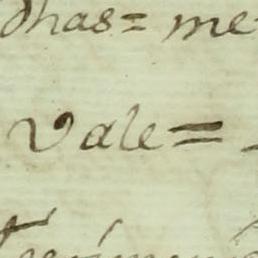 dhas= me
Vale=